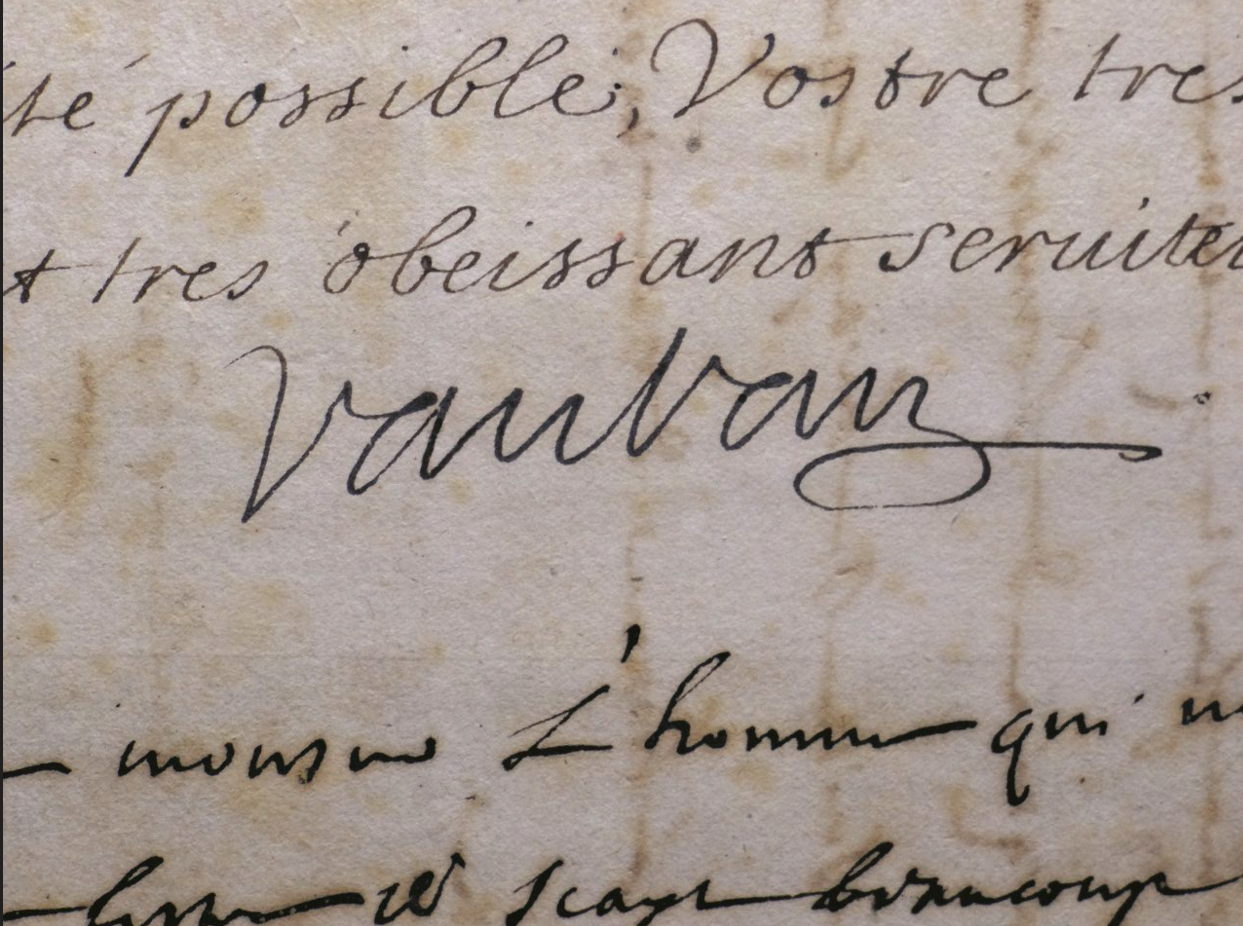 té possible, Vostre tres
t tres obeissant seruiteu
Vauban
monsieur L'homme qui
scayt beaucoup